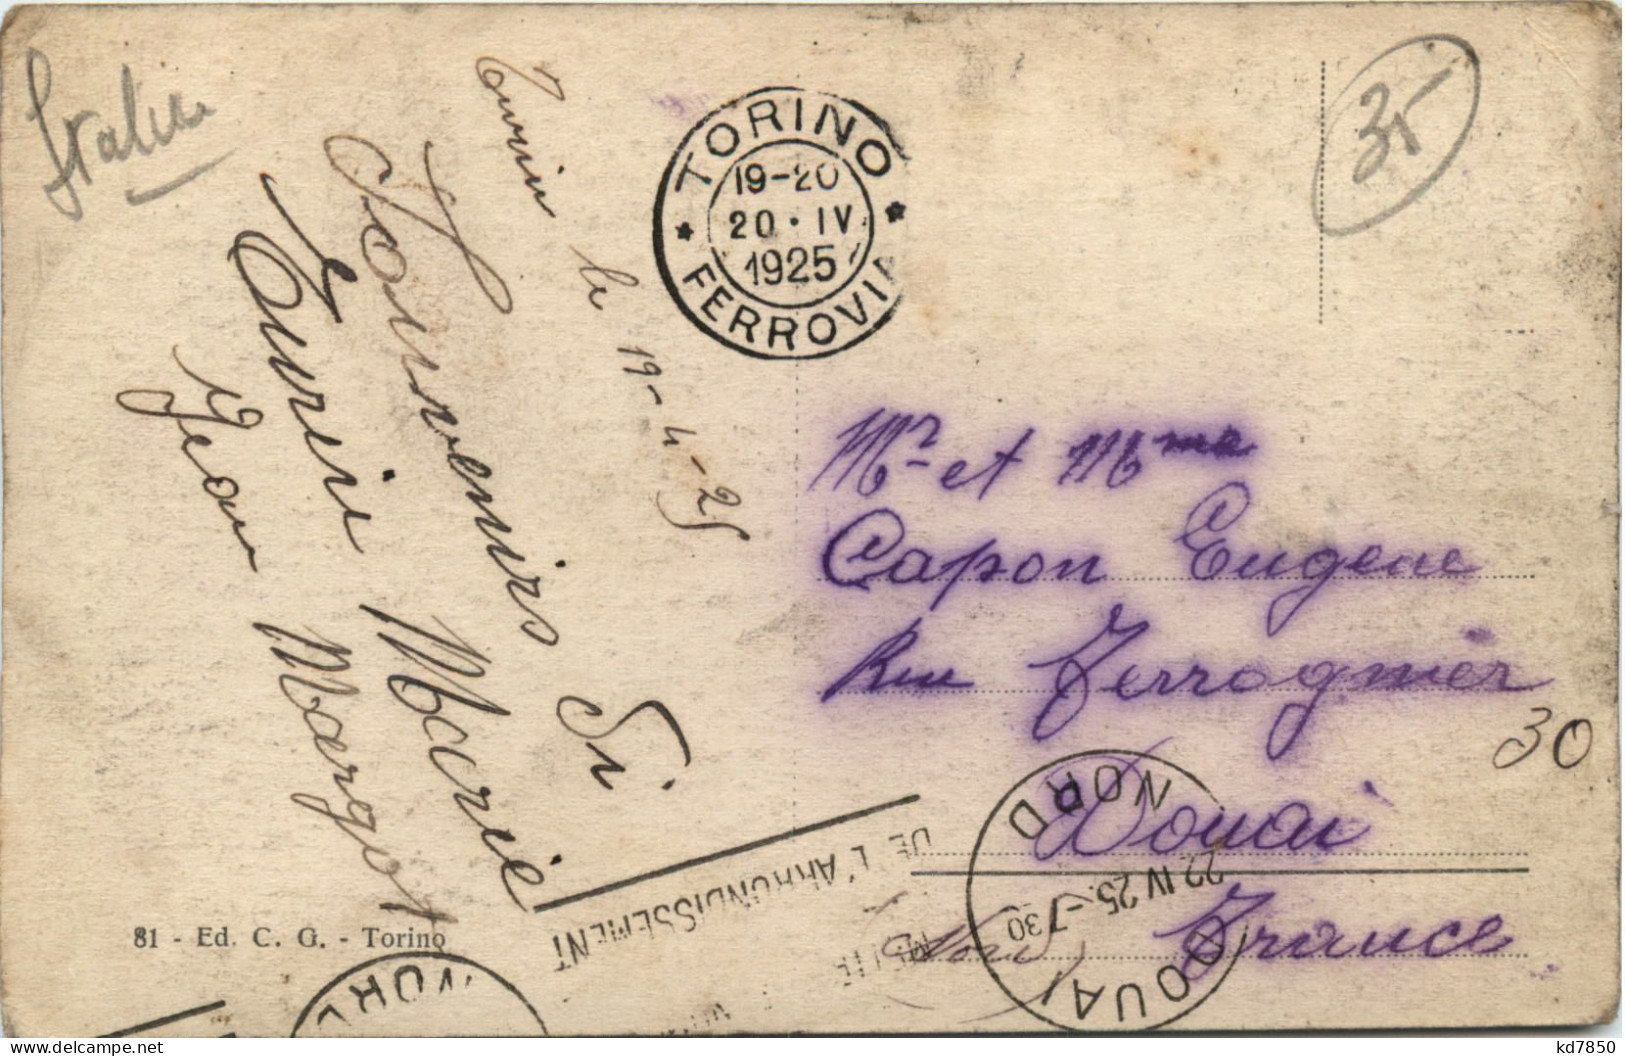 Italie
35
TORINO
FERROVIA
19-20
20·IV
1925
Turin le 19-4-25
Souvenirs
Marie
Jean Margot
Mr et Mme
Capon Eugene
Rue Terrognier
30
Douai
Nord France
DOUAI
NORD
22 IV 25 - 7 30
DE L'ARRONDISSEMENT
81 - Ed. C. G. - Torino
NORD
kd7850